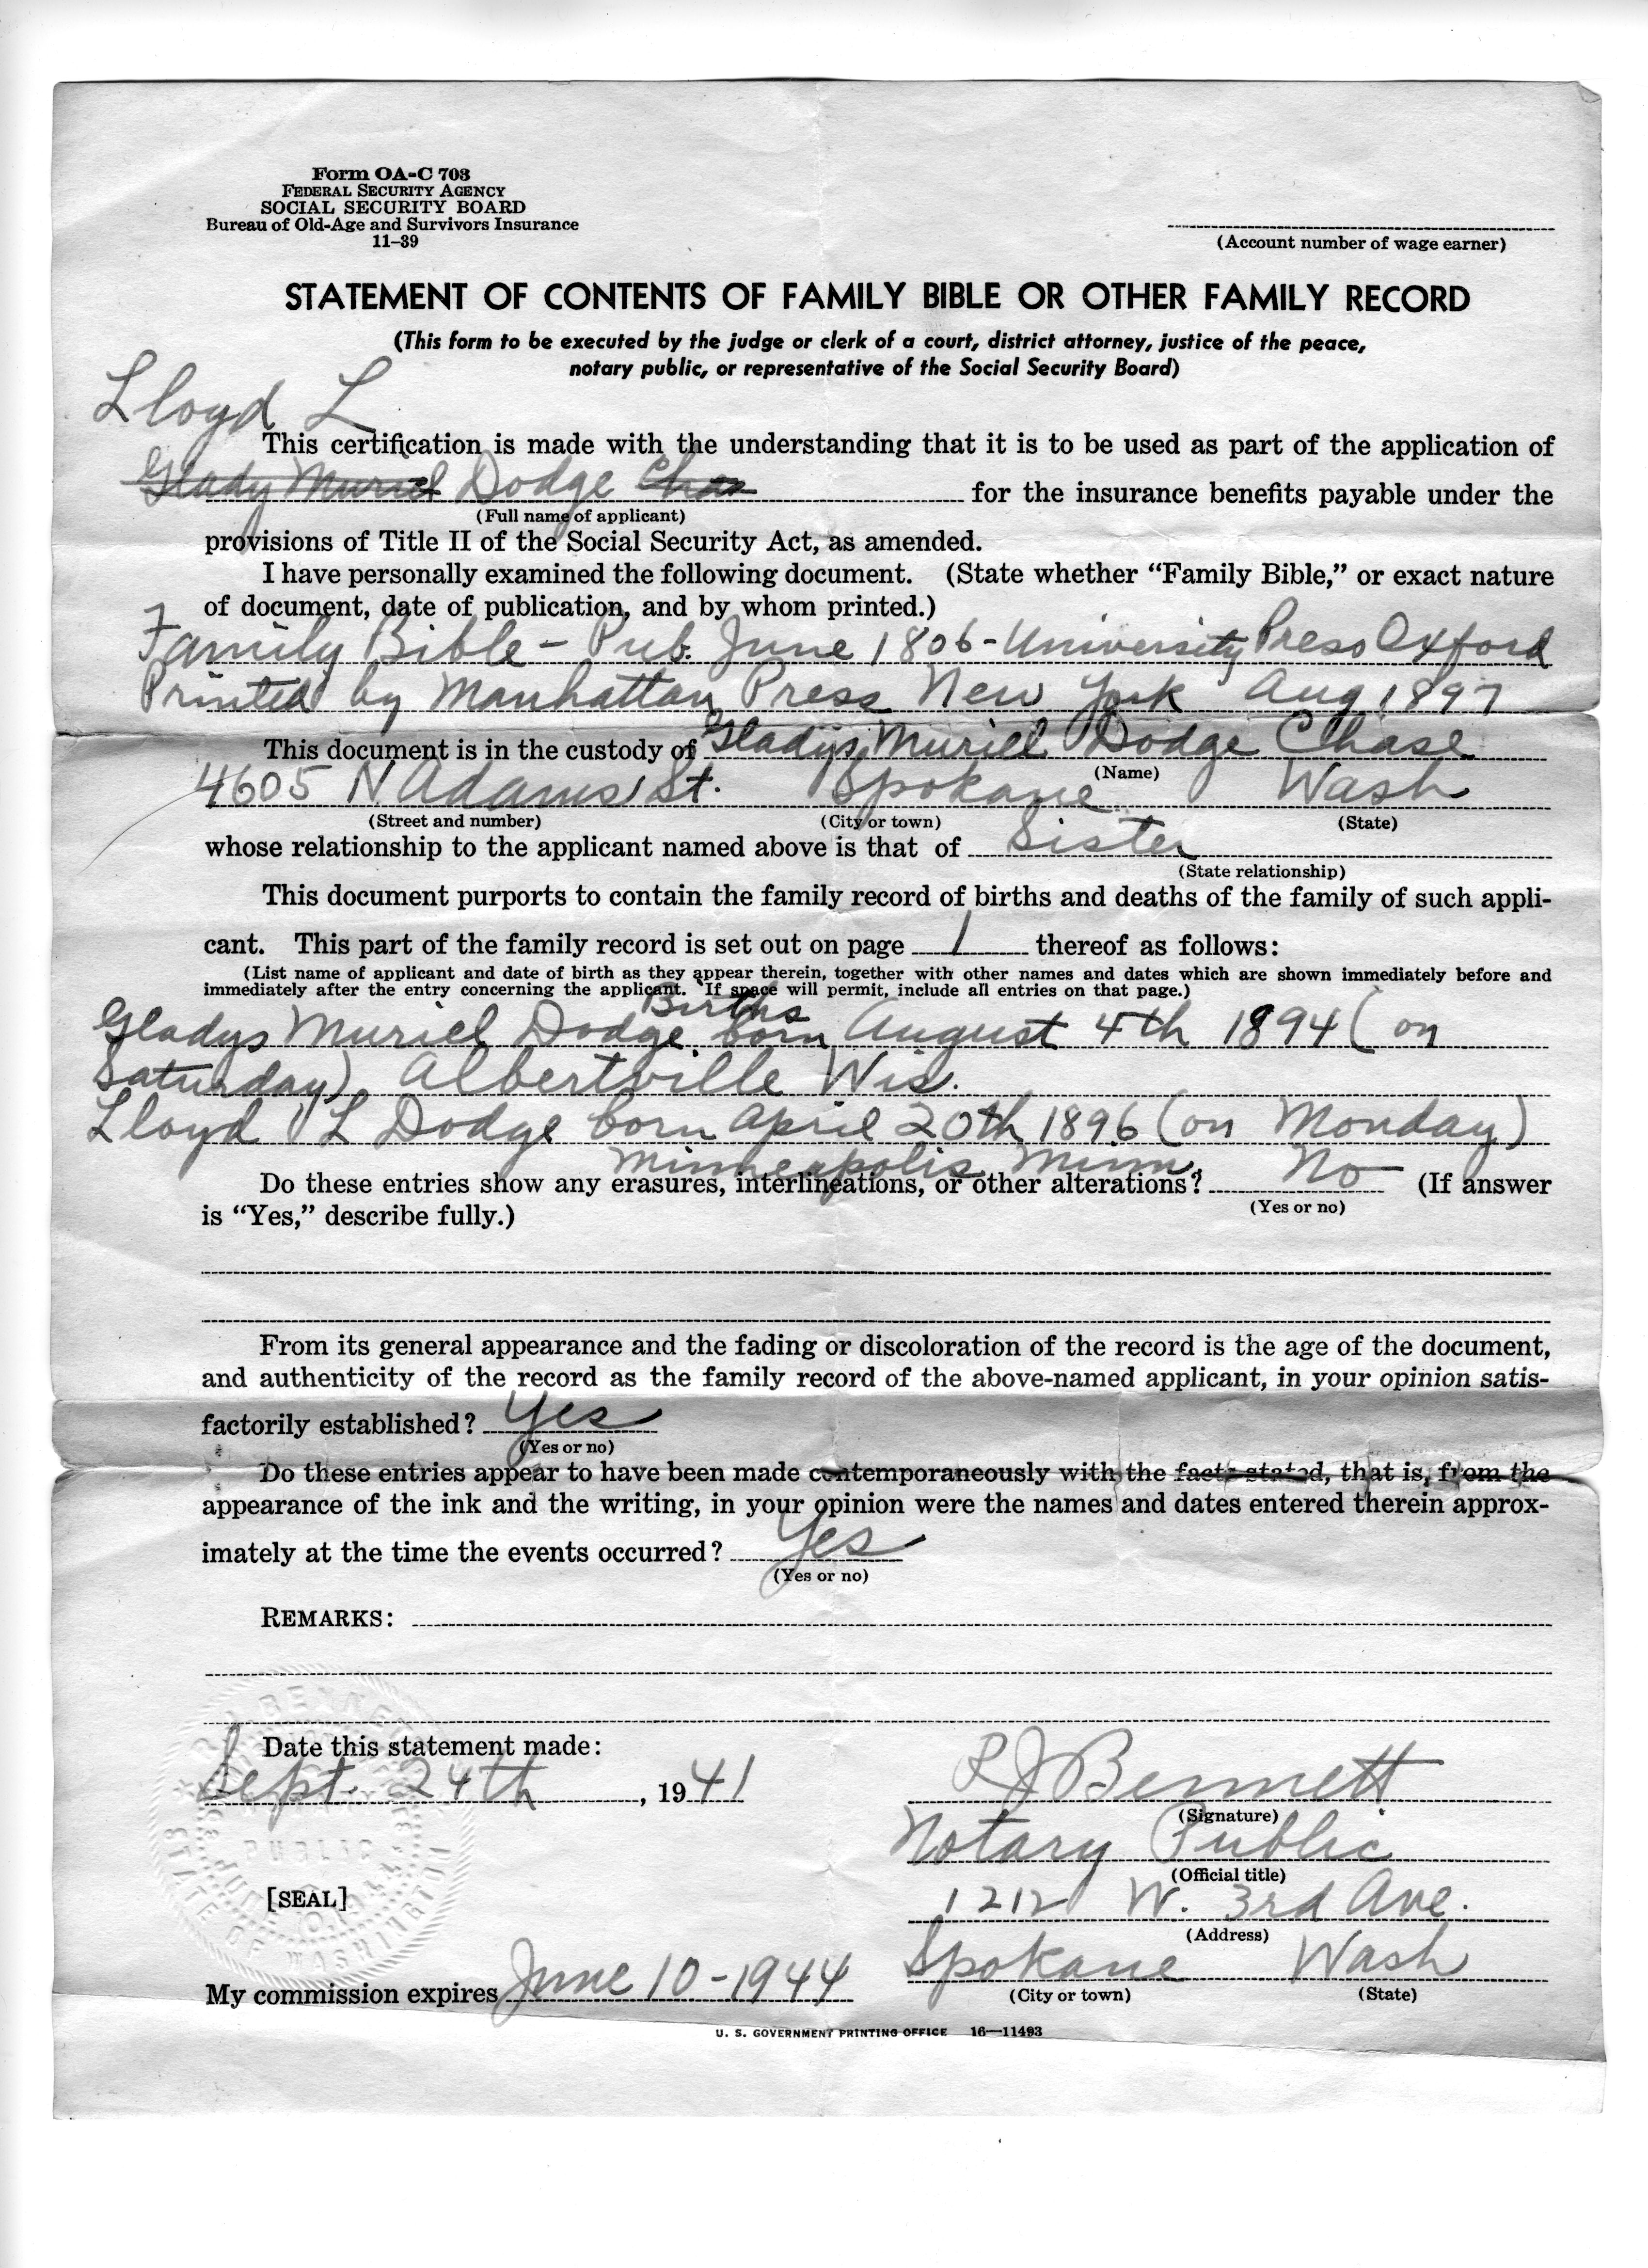 Form OA-C 703
FEDERAL SECURITY AGENCY
SOCIAL SECURITY BOARD
Bureau of Old-Age and Survivors Insurance
11–39
(Account number of wage earner)
STATEMENT OF CONTENTS OF FAMILY BIBLE OR OTHER FAMILY RECORD
(This form to be executed by the judge or clerk of a court, district attorney, justice of the peace,
notary public, or representative of the Social Security Board)
Lloyd L
This certification is made with the understanding that it is to be used as part of the application of
Glady Muriel Dodge Chas for the insurance benefits payable under the
(Full name of applicant)
provisions of Title II of the Social Security Act, as amended.
I have personally examined the following document. (State whether “Family Bible,” or exact nature
of document, date of publication, and by whom printed.)
Family Bible – Pub. June 1806 - University Press Oxford
Printed by Manhattan Press New York Aug 1897
This document is in the custody of Gladys Muriel Dodge Chase
(Name)
4605 N Adams St. Spokane Wash
(Street and number) (City or town) (State)
whose relationship to the applicant named above is that of Sister
(State relationship)
This document purports to contain the family record of births and deaths of the family of such appli-
cant. This part of the family record is set out on page 1 thereof as follows:
(List name of applicant and date of birth as they appear therein, together with other names and dates which are shown immediately before and
immediately after the entry concerning the applicant. If space will permit, include all entries on that page.)
Births
Gladys Muriel Dodge born August 4th 1894 (on
Saturday) Albertville Wis.
Lloyd L Dodge born April 20th 1896 (on Monday)
Minneapolis Minn.
Do these entries show any erasures, interlineations, or other alterations? No (If answer
(Yes or no)
is “Yes,” describe fully.)
From its general appearance and the fading or discoloration of the record is the age of the document,
and authenticity of the record as the family record of the above-named applicant, in your opinion satis-
factorily established? Yes
(Yes or no)
Do these entries appear to have been made contemporaneously with the facts stated, that is, from the
appearance of the ink and the writing, in your opinion were the names and dates entered therein approx-
imately at the time the events occurred? Yes
(Yes or no)
REMARKS:
Date this statement made:
Sept. 24th, 1941
R J Bennett
(Signature)
Notary Public
(Official title)
[SEAL]
PUBLIC
STATE OF WASHINGTON
1212 W. 3rd Ave.
(Address)
Spokane Wash
(City or town) (State)
My commission expires June 10-1944
U. S. GOVERNMENT PRINTING OFFICE 16—11493